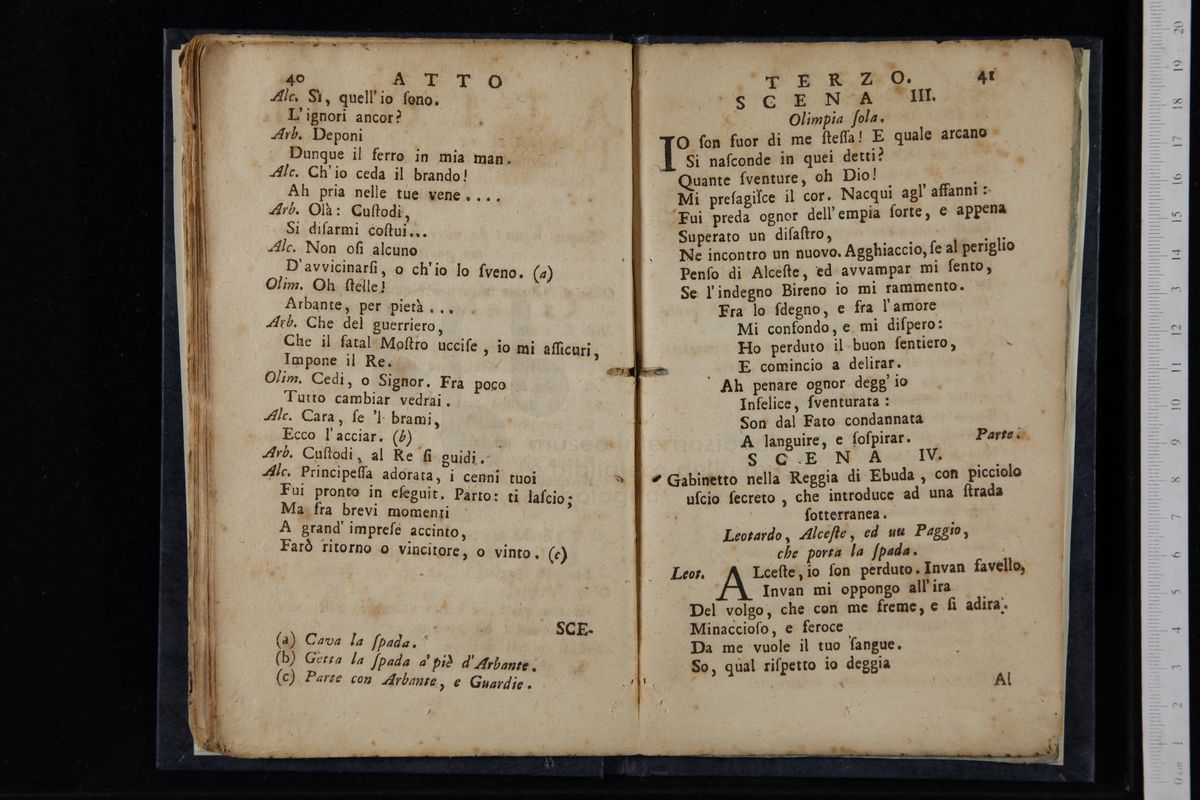 40 ATTO
Alc. Sì, quell'io ſono.
L'ignori ancor?
Arb. Deponi
Dunque il ferro in mia man.
Alc. Ch'io ceda il brando!
Ah pria nelle tue vene....
Arb. Olà: Cuſtodi,
Si diſarmi coſtui...
Alc. Non oſi alcuno
D'avvicinarſi, o ch'io lo ſveno. (a)
Olim. Oh ſtelle!
Arbante, per pietà...
Arb. Che del guerriero,
Che il fatal Moſtro ucciſe, io mi aſſicuri,
Impone il Re.
Olim. Cedi, o Signor. Fra poco
Tutto cambiar vedrai.
Alc. Cara, ſe 'l brami,
Ecco l'acciar. (b)
Arb. Cuſtodi, al Re ſi guidi.
Alc. Principeſſa adorata, i cenni tuoi
Fui pronto in eſeguir. Parto: ti laſcio;
Ma fra brevi momenti
A grand'impreſe accinto,
Farò ritorno o vincitore, o vinto. (c)
SCE-
(a) Cava la ſpada.
(b) Getta la ſpada a' piè d'Arbante.
(c) Parte con Arbante, e Guardie.
TERZO. 41
SCENA III.
Olimpia ſola.
IO ſon fuor di me ſteſſa! E quale arcano
Si naſconde in quei detti?
Quante ſventure, oh Dio!
Mi preſagiſce il cor. Nacqui agl' affanni:
Fui preda ognor dell'empia ſorte, e appena
Superato un diſaſtro,
Ne incontro un nuovo. Agghiaccio, ſe al periglio
Penſo di Alceſte, ed avvampar mi ſento,
Se l'indegno Bireno io mi rammento.
Fra lo ſdegno, e fra l'amore
Mi confondo, e mi diſpero:
Ho perduto il buon ſentiero,
E comincio a delirar.
Ah penare ognor degg'io
Infelice, ſventurata:
Son dal Fato condannata
A languire, e ſoſpirar. Parte.
SCENA IV.
Gabinetto nella Reggia di Ebuda, con picciolo
uſcio ſecreto, che introduce ad una ſtrada
ſotterranea.
Leotardo, Alceſte, ed un Paggio,
che porta la ſpada.
Leot. ALceſte, io ſon perduto. Invan favello,
Invan mi oppongo all'ira
Del volgo, che con me freme, e ſi adira.
Minaccioſo, e feroce
Da me vuole il tuo ſangue.
So, qual riſpetto io deggia
Al